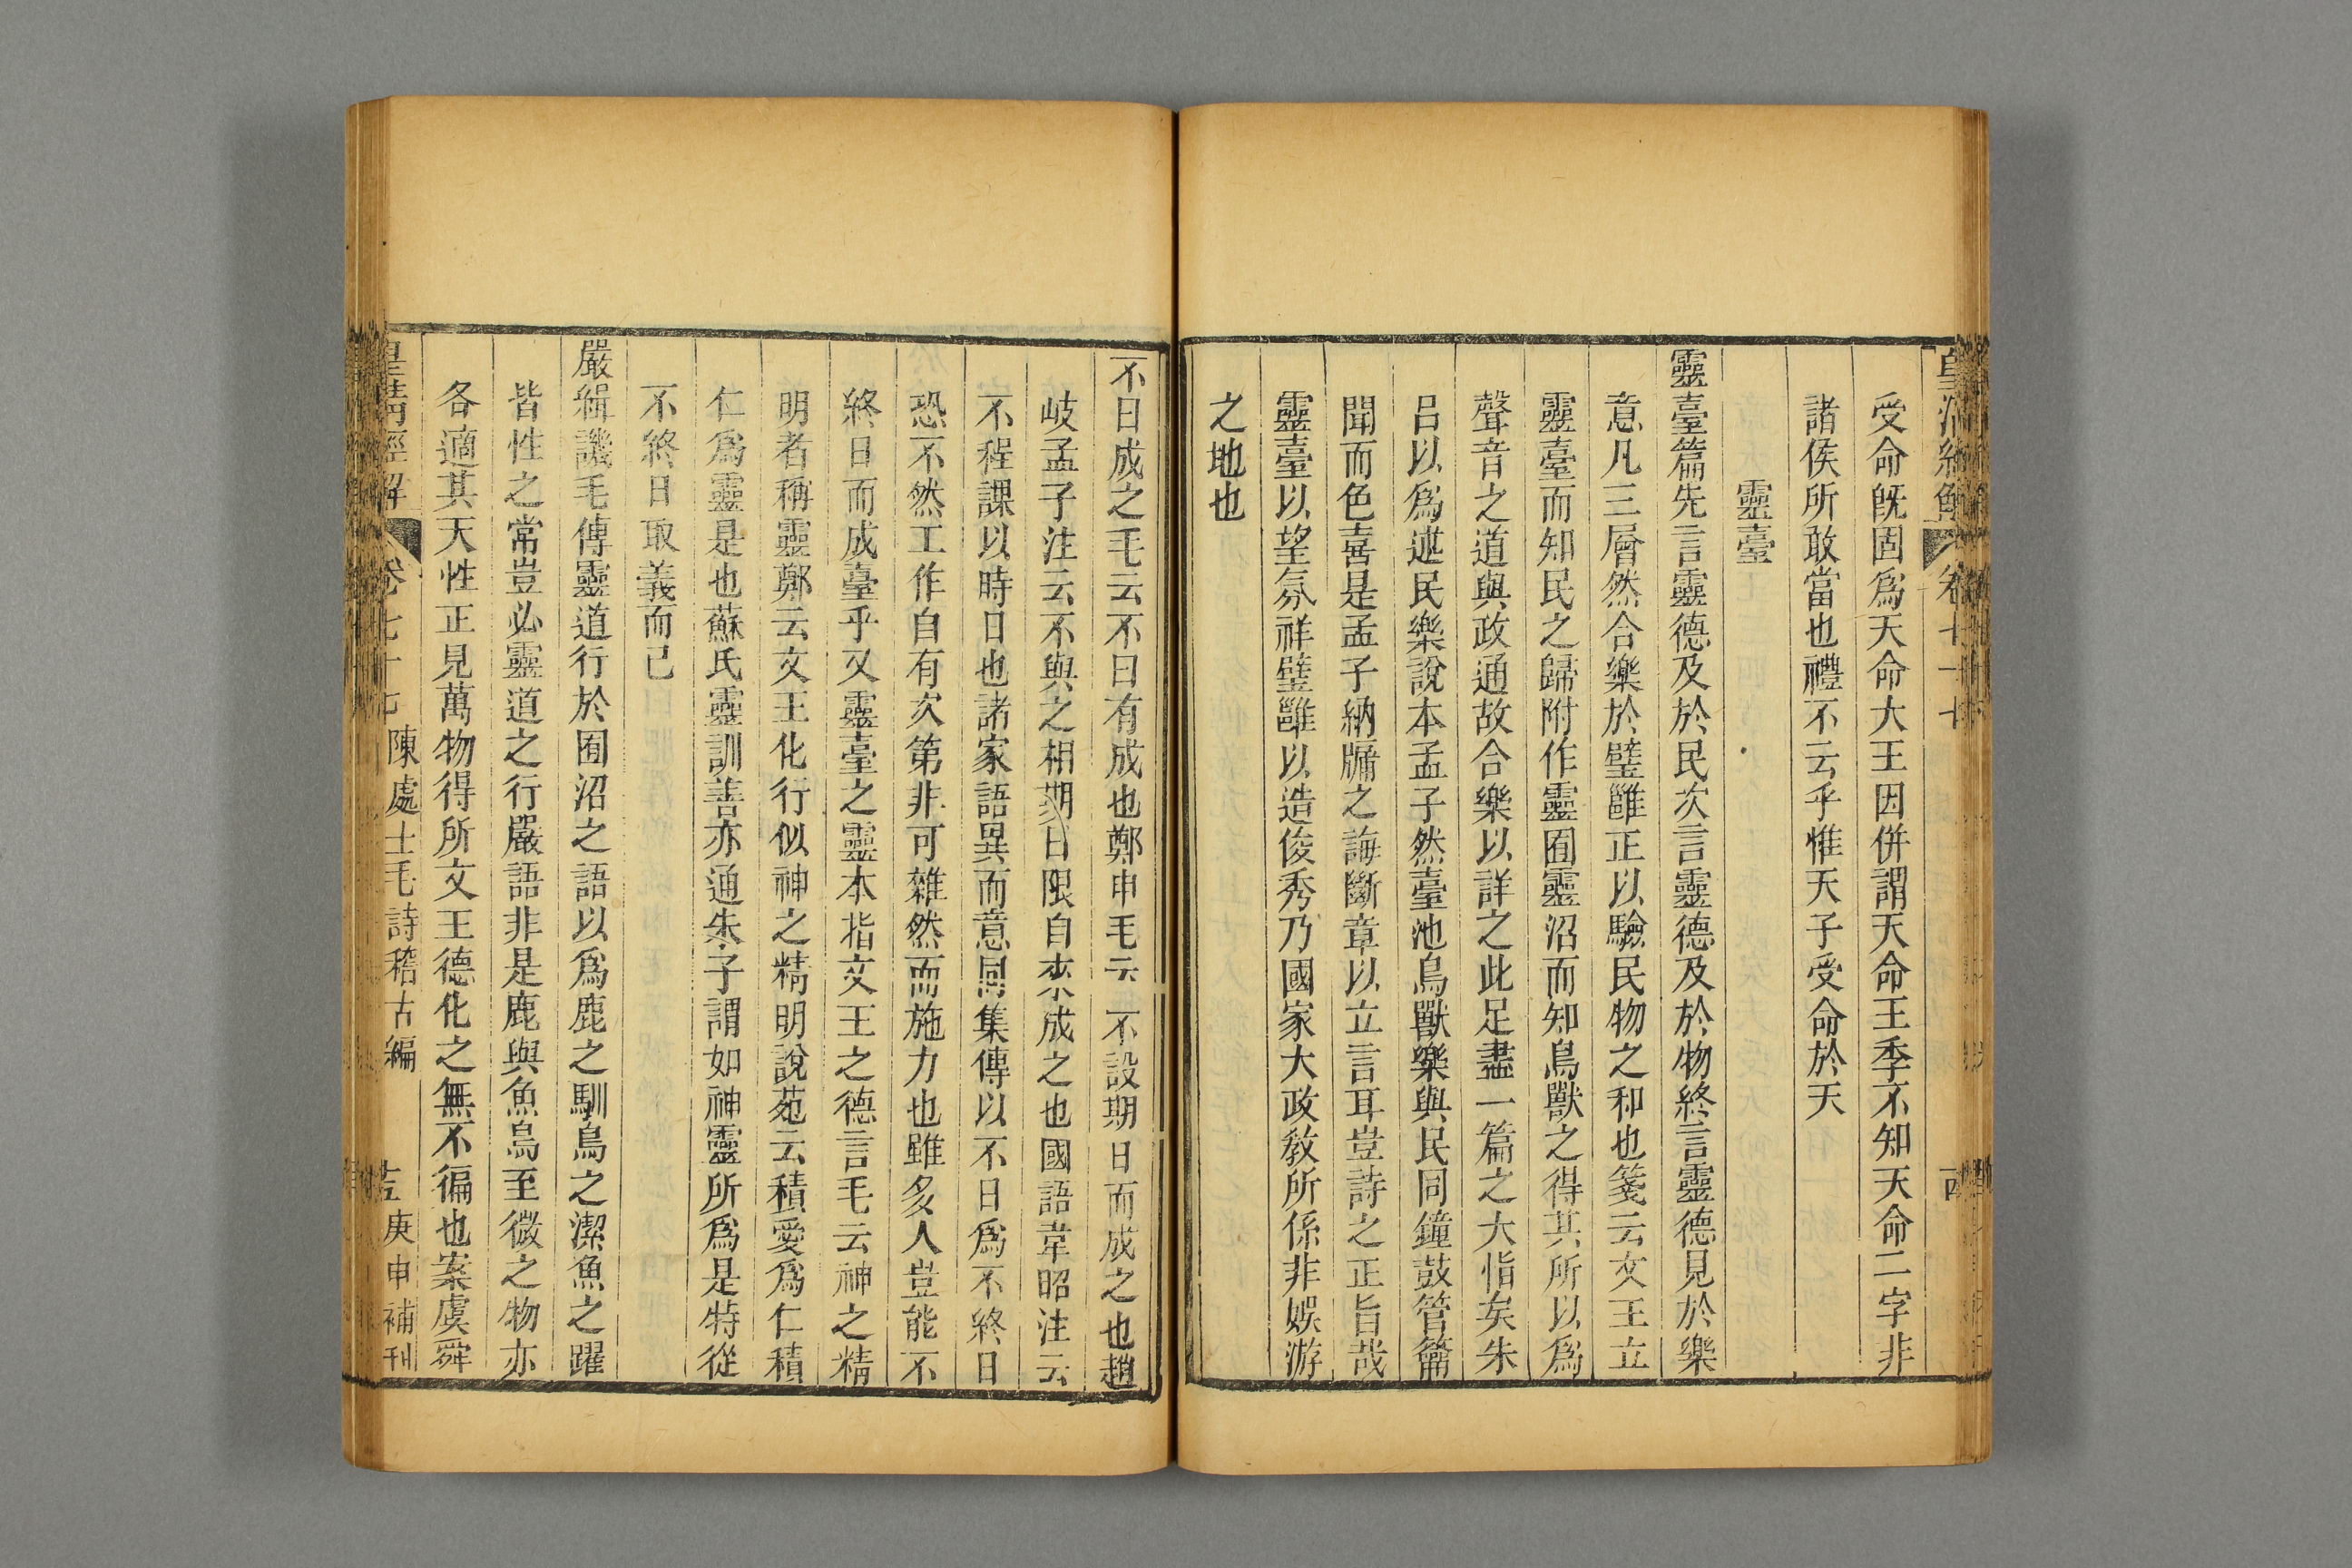 受命旣固爲天命大王因併謂天命王季不知天命二字非
諸侯所敢當也禮不云乎惟天子受命於天
靈臺
靈臺篇先言靈德及於民次言靈德及於物終言靈德見於樂
意凡三層然合樂於璧雝正以驗民物之和也箋云文王立
靈臺而知民之歸附作靈囿靈沼而知鳥獸之得其所以爲
聲音之道與政通故合樂以詳之此足盡一篇之大恉矣朱
呂以爲述民樂說本孟子然臺池鳥獸樂與民同鐘鼓管籥
聞而色喜是孟子納牖之誨斷章以立言耳豈詩之正旨哉
靈臺以望氛祥璧雝以造俊秀乃國家大政敎所係非娛游
之地也
不日成之毛云不日有成也鄭申毛云不設期日而成之也趙
岐孟子注云不與之相期日限自來成之也國語韋昭注云
不程課以時日也諸家語異而意同集傳以不日爲不終日
恐不然工作自有次第非可雜然而施力也雖多人豈能不
終日而成臺乎又靈臺之靈本指文王之德言毛云神之精
明者稱靈鄭云文王化行似神之精明說苑云積愛爲仁積
仁爲靈是也蘇氏靈訓善亦通朱子謂如神靈所爲是特從
不終日取義而已
嚴緝譏毛傳靈道行於囿沼之語以爲鹿之馴鳥之潔魚之躍
皆性之常豈必靈道之行嚴語非是鹿與魚鳥至微之物亦
各適其天性正見萬物得所文王德化之無不徧也案虞舜
皇淸經解 卷七十七 陳處士毛詩稽古編 庚申補刊